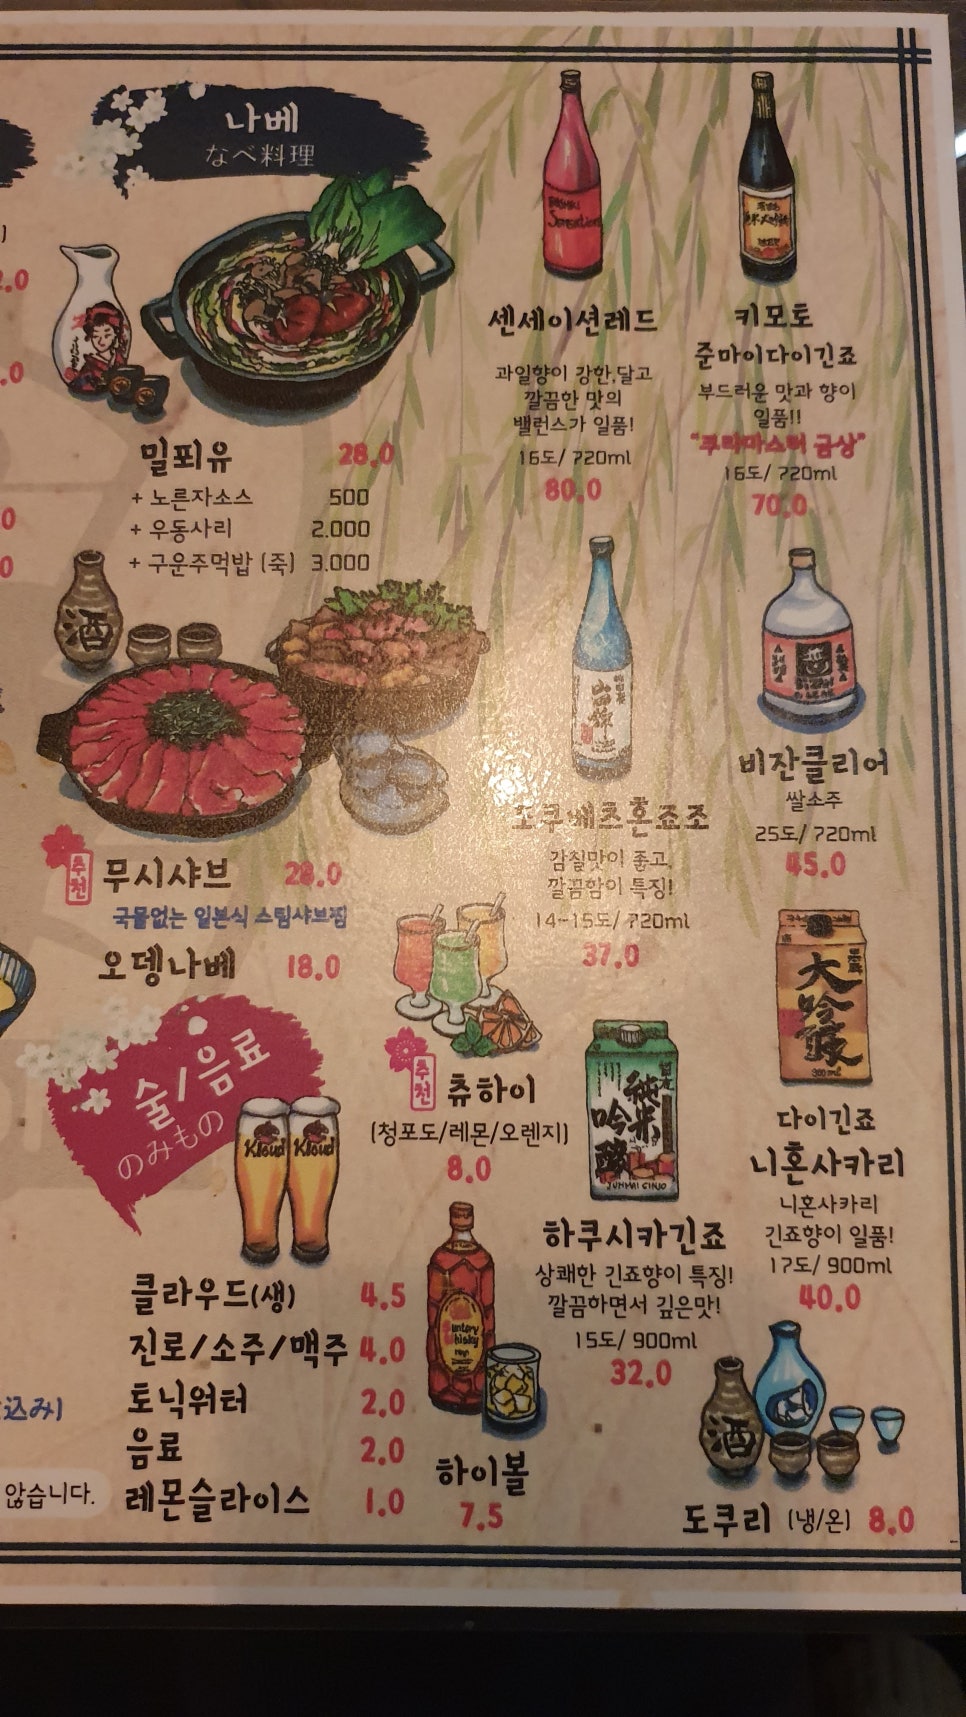 나베
なべ料理
밀푀유 28.0
+ 노른자소스 500
+ 우동사리 2.000
+ 구운주먹밥 (죽) 3.000
酒
추천
무시샤브 28.0
국물없는 일본식 스팀샤브찜
오뎅나베 18.0
술/음료
のみもの
Kloud Kloud
클라우드(생) 4.5
진로/소주/맥주 4.0
토닉워터 2.0
음료 2.0
레몬슬라이스 1.0
추천
츄하이
(청포도/레몬/오렌지)
8.0
Suntory
Whisky
하이볼
7.5
센세이션레드
과일향이 강한,달고
깔끔한 맛의
밸런스가 일품!
16도/ 720ml
80.0
키모토
준마이다이긴죠
부드러운 맛과 향이
일품!!
"쿠라마스터 금상"
16도/ 720ml
70.0
토쿠베츠혼죠조
감칠맛이 좋고,
깔끔함이 특징!
14~15도/ 720ml
37.0
비잔클리어
쌀소주
25도/ 720ml
45.0
純米
吟醸
JUNMAI GINJO
하쿠시카긴죠
상쾌한 긴죠향이 특징!
깔끔하면서 깊은맛!
15도/ 900ml
32.0
大
吟
醸
900ml
다이긴죠
니혼사카리
니혼사카리
긴죠향이 일품!
17도/ 900ml
40.0
酒
도쿠리 (냉/온) 8.0
2.0
.0
0
0
込み)
않습니다.